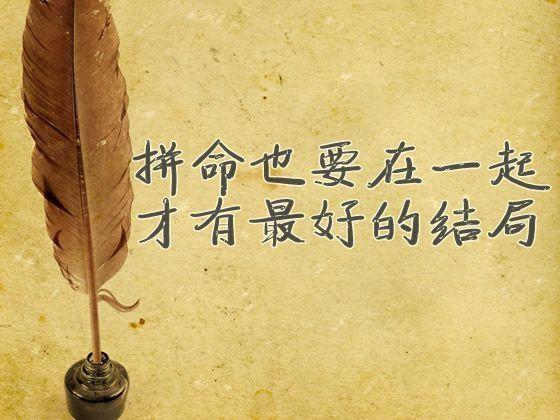 拼命也要在一起
才有最好的结局